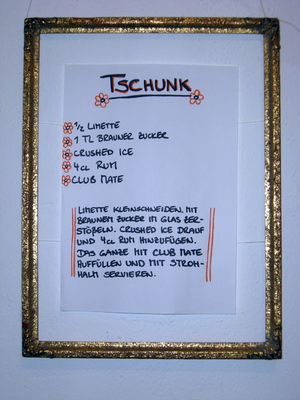 TSCHUNK
1/2 LIMETTE
1 TL BRAUNER ZUCKER
CRUSHED ICE
4 CL RUM
CLUB MATE
LIMETTE KLEINSCHNEIDEN, MIT
BRAUNEM ZUCKER IM GLAS ZER-
STÖßELN. CRUSHED ICE DRAUF
UND 4 CL RUM HINZUFÜGEN.
DAS GANZE MIT CLUB MATE
AUFFÜLLEN UND MIT STROH-
HALM SERVIEREN.